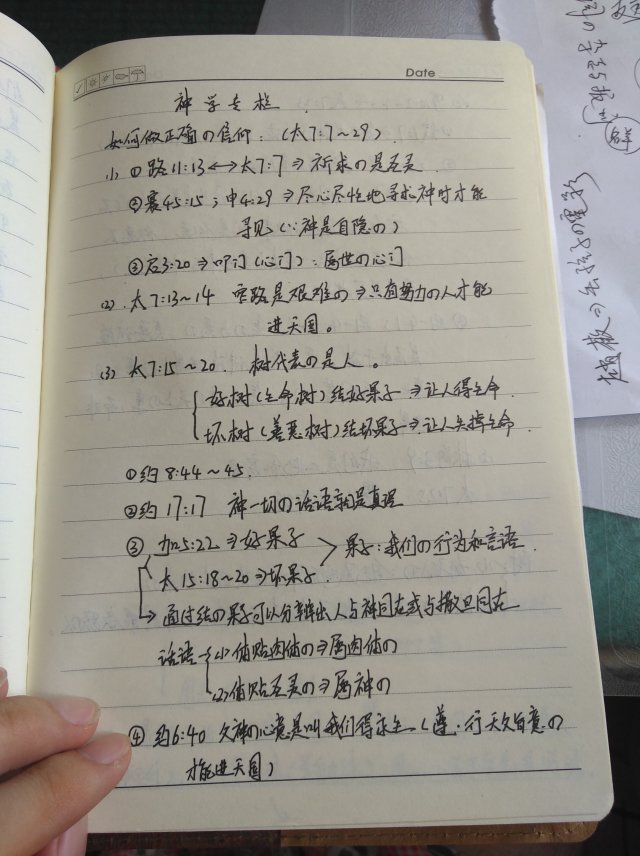 Date
神学专栏
如何做正面の信仰：（太7:7～29）
(1) ①路11:13⟷太7:7⇒祈求の是圣灵
②赛45:15；申4:29⇒尽心尽性地寻求神时才能
寻见（∵神是自隐の）
③启3:20⇒叩门（心门）：属世の心门
(2). 太7:13~14 窄路是艰难の⇒只有努力の人才能
进天国。
(3) 太7:15～20. 树代表の是人。
好树（生命树）结好果子⇒让人得生命.
坏树（善恶树）结坏果子⇒让人失掉生命.
①约8:44～45.
②约17:17 神一切の话语就是真理
③加5:22⇒好果子
太15:18~20⇒坏果子.
果子:我们の行为和言语.
通过结の果子可以分辨出人与神同在或与撒旦同在
话语 (1)体贴肉体の⇒属肉体の
(2)体贴圣灵の⇒属神の
④约6:40 父神の心意是叫我们得永生（遵.行天父旨意の
才能进天国）